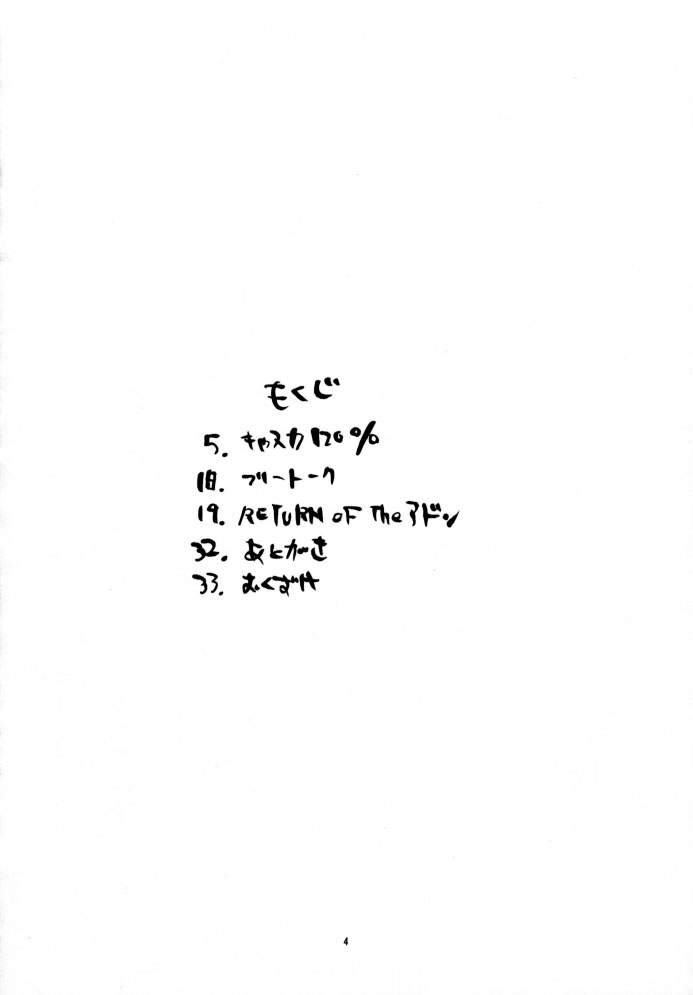 もくじ
5. キャスカ120%
18. フリートーク
19. RETURN OF The アドン
32. あとがき
33. おくづけ
4